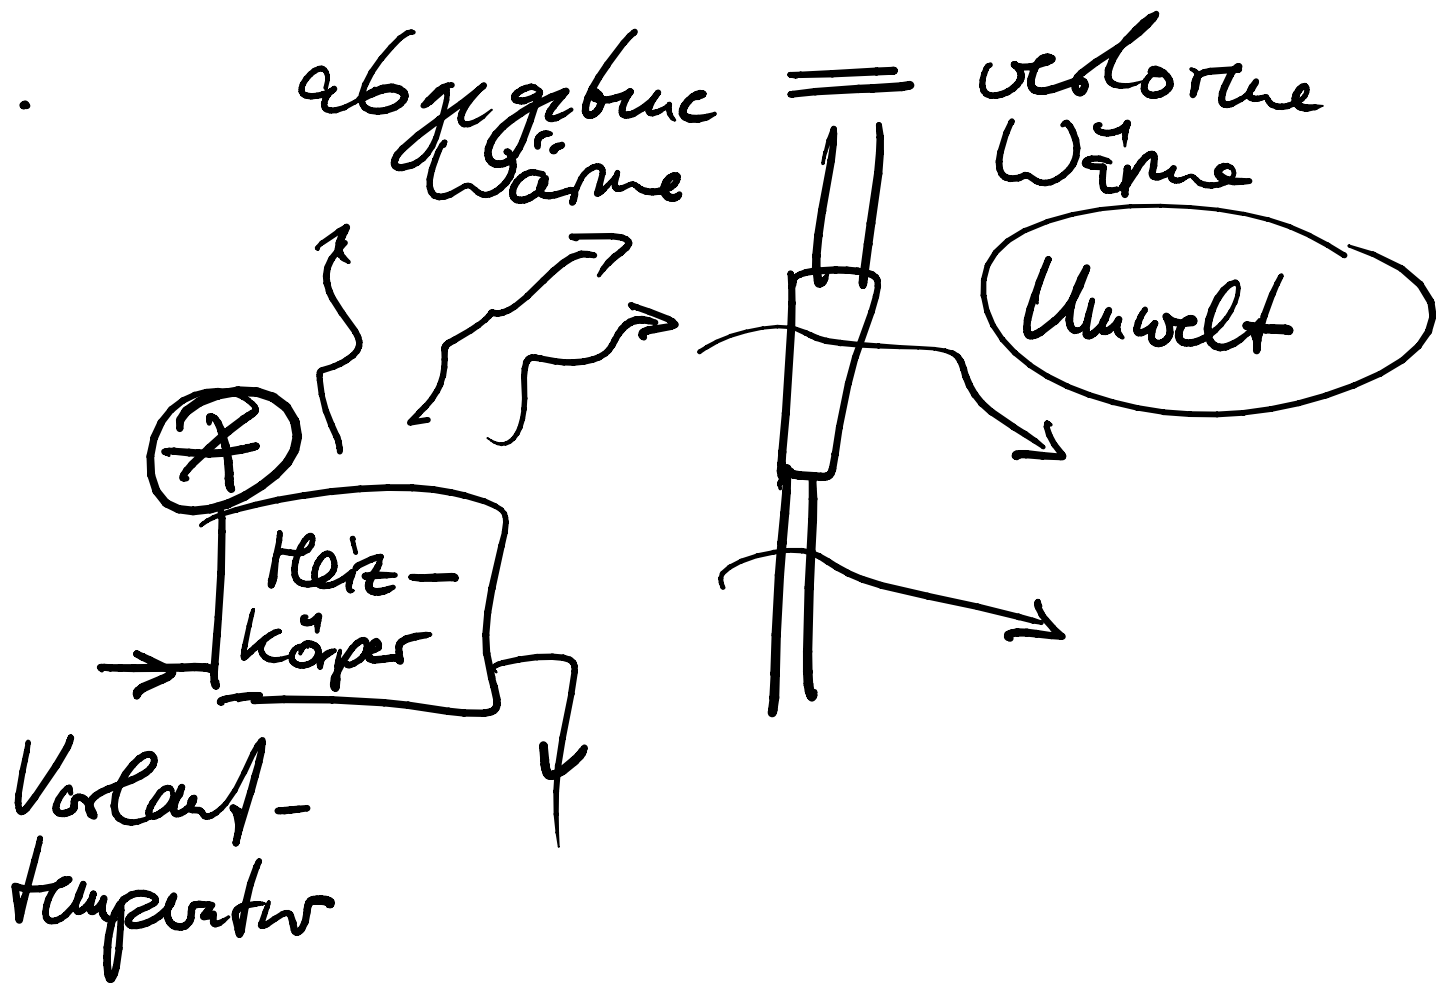 abgegebene = verlorene
Wärme Wärme
Umwelt
Heiz-
körper
Vorlauf-
temperatur